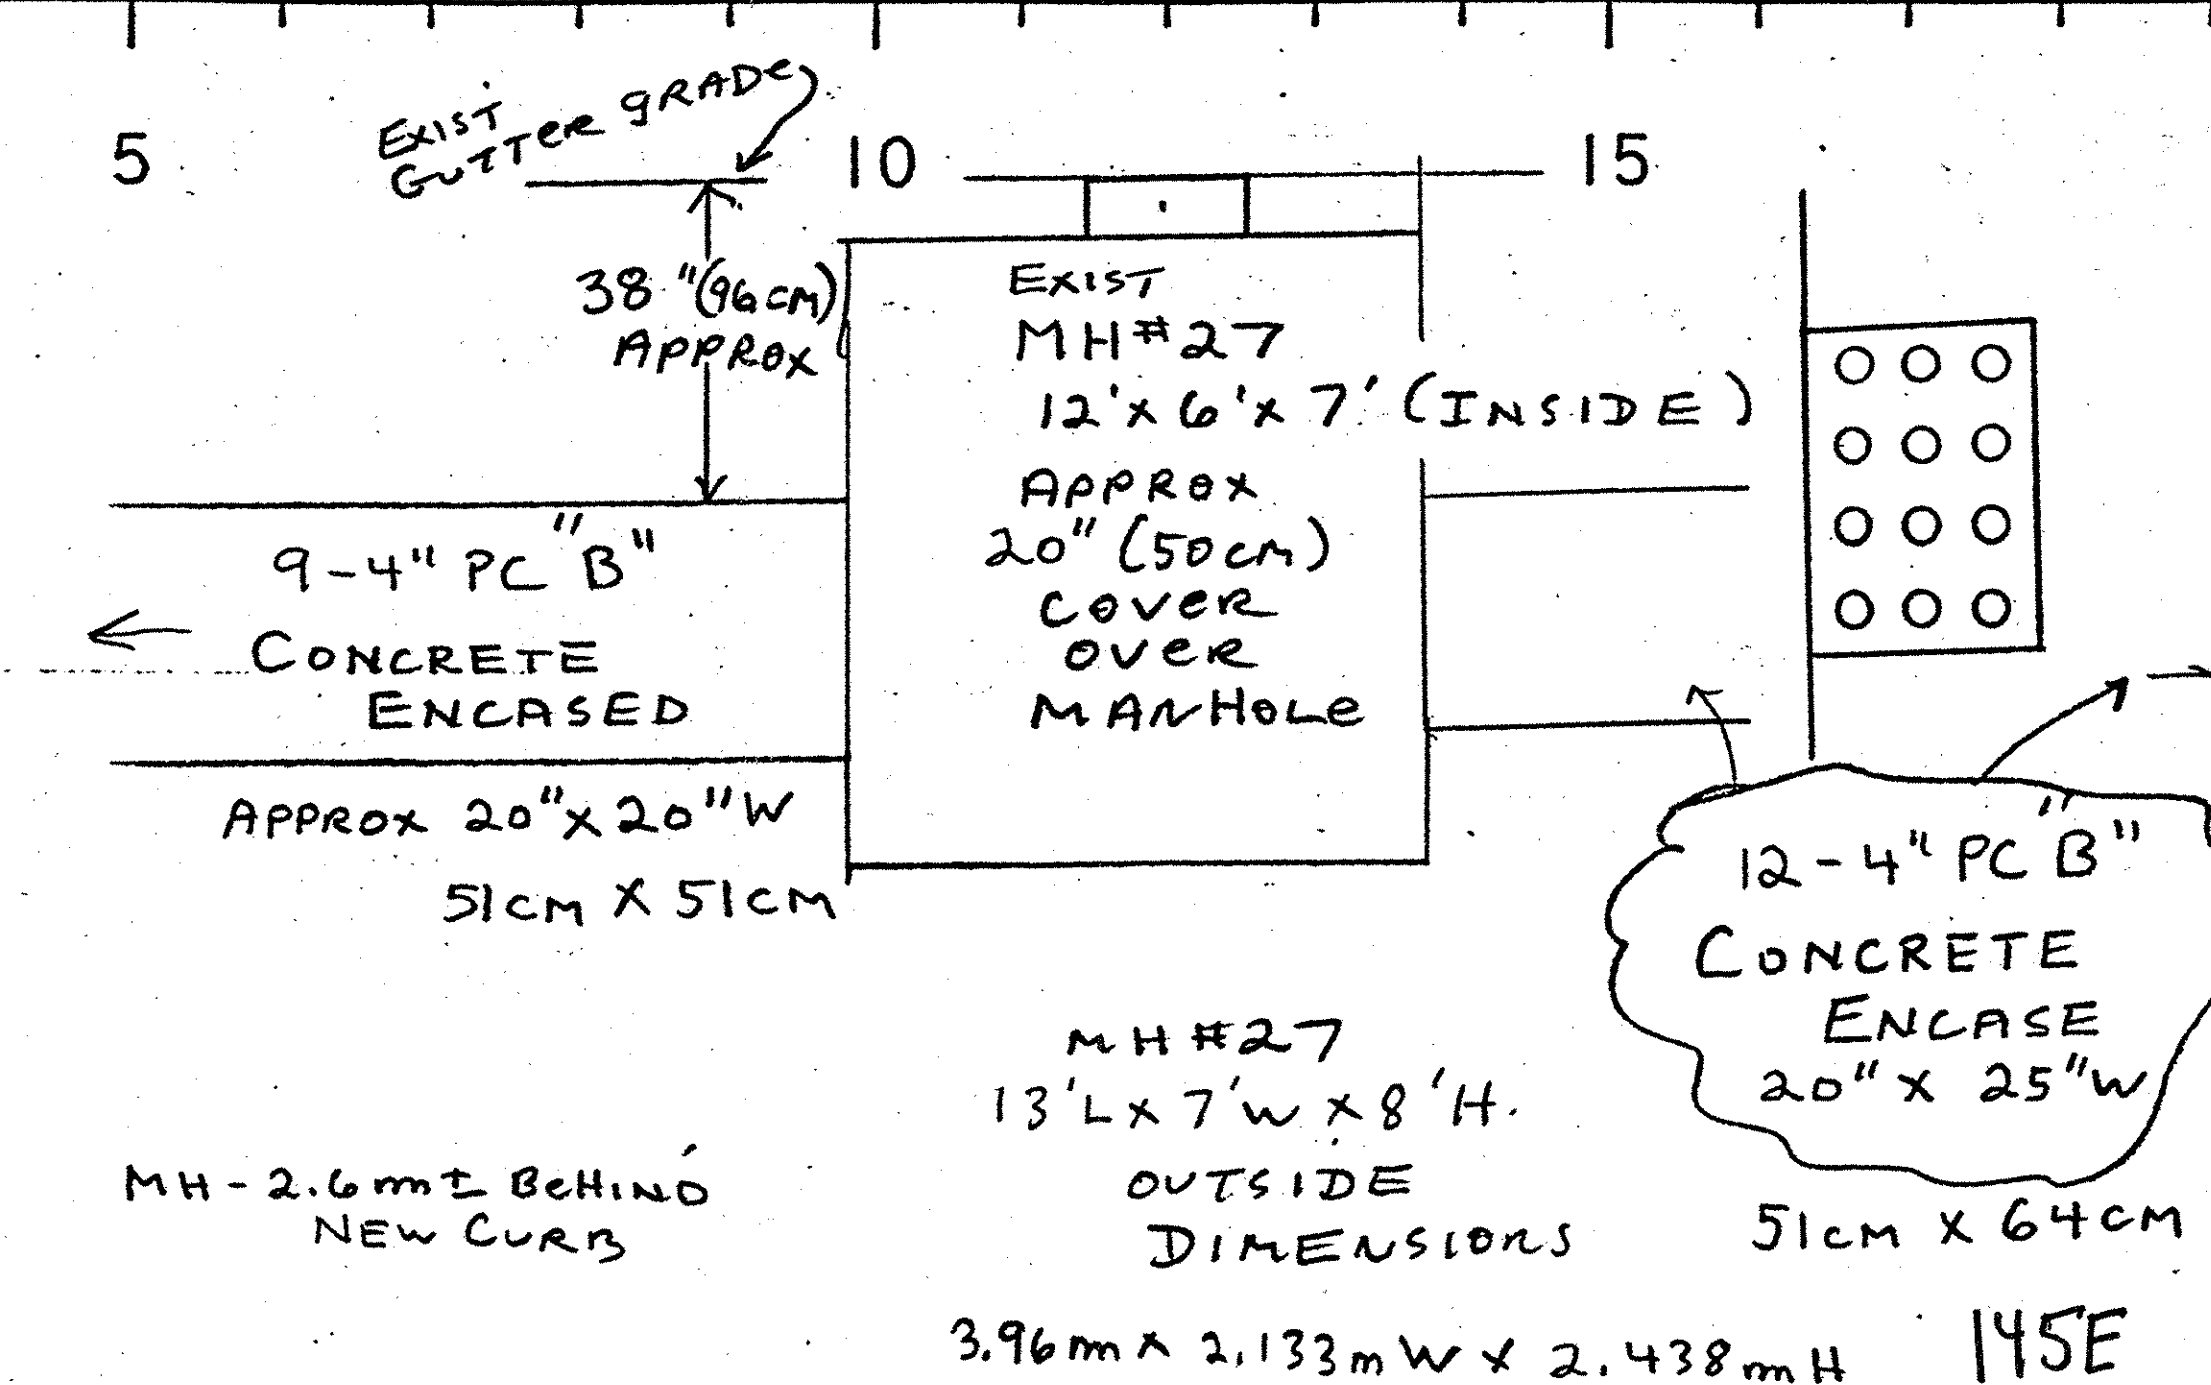 5
10
15
EXIST
GUTTER GRADE
38" (96cm)
APPROX
EXIST
MH#27
12'x 6'x 7' (INSIDE)
APPROX
20" (50cm)
COVER
OVER
MANHOLE
9-4" PC "B"
CONCRETE
ENCASED
APPROX 20"x 20"W
51cm X 51cm
12-4" PC "B"
CONCRETE
ENCASE
20" x 25"W
51cm x 64cm
MH #27
13'L x 7'W x 8'H.
OUTSIDE
DIMENSIONS
3.96m x 2.133m W x 2.438m H
MH - 2.6m± BEHIND
NEW CURB
145E